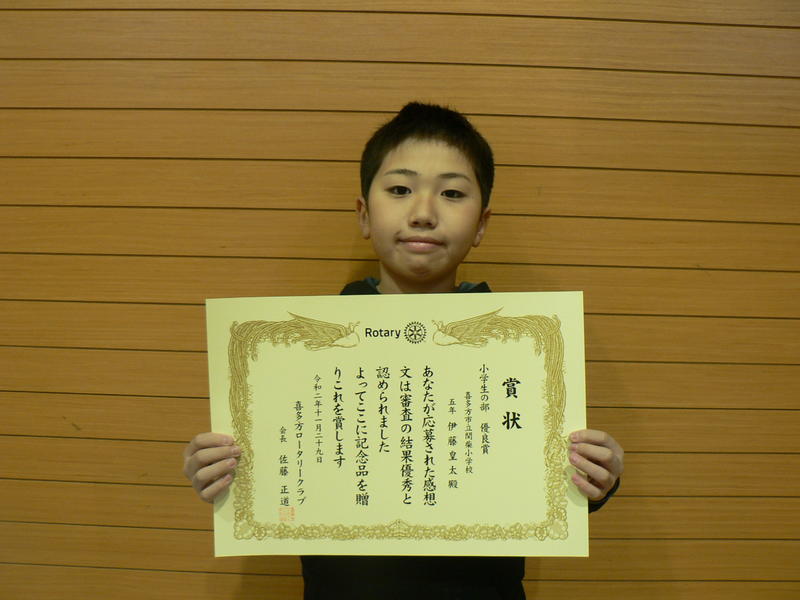 Rotary
賞状
小学生の部 優良賞
喜多方市立関柴小学校
五年 伊藤皇太殿
あなたが応募された感想
文は審査の結果優秀と
認められました
よってここに記念品を贈
りこれを賞します
令和二年十一月二十九日
喜多方ロータリークラブ
会長 佐藤正道